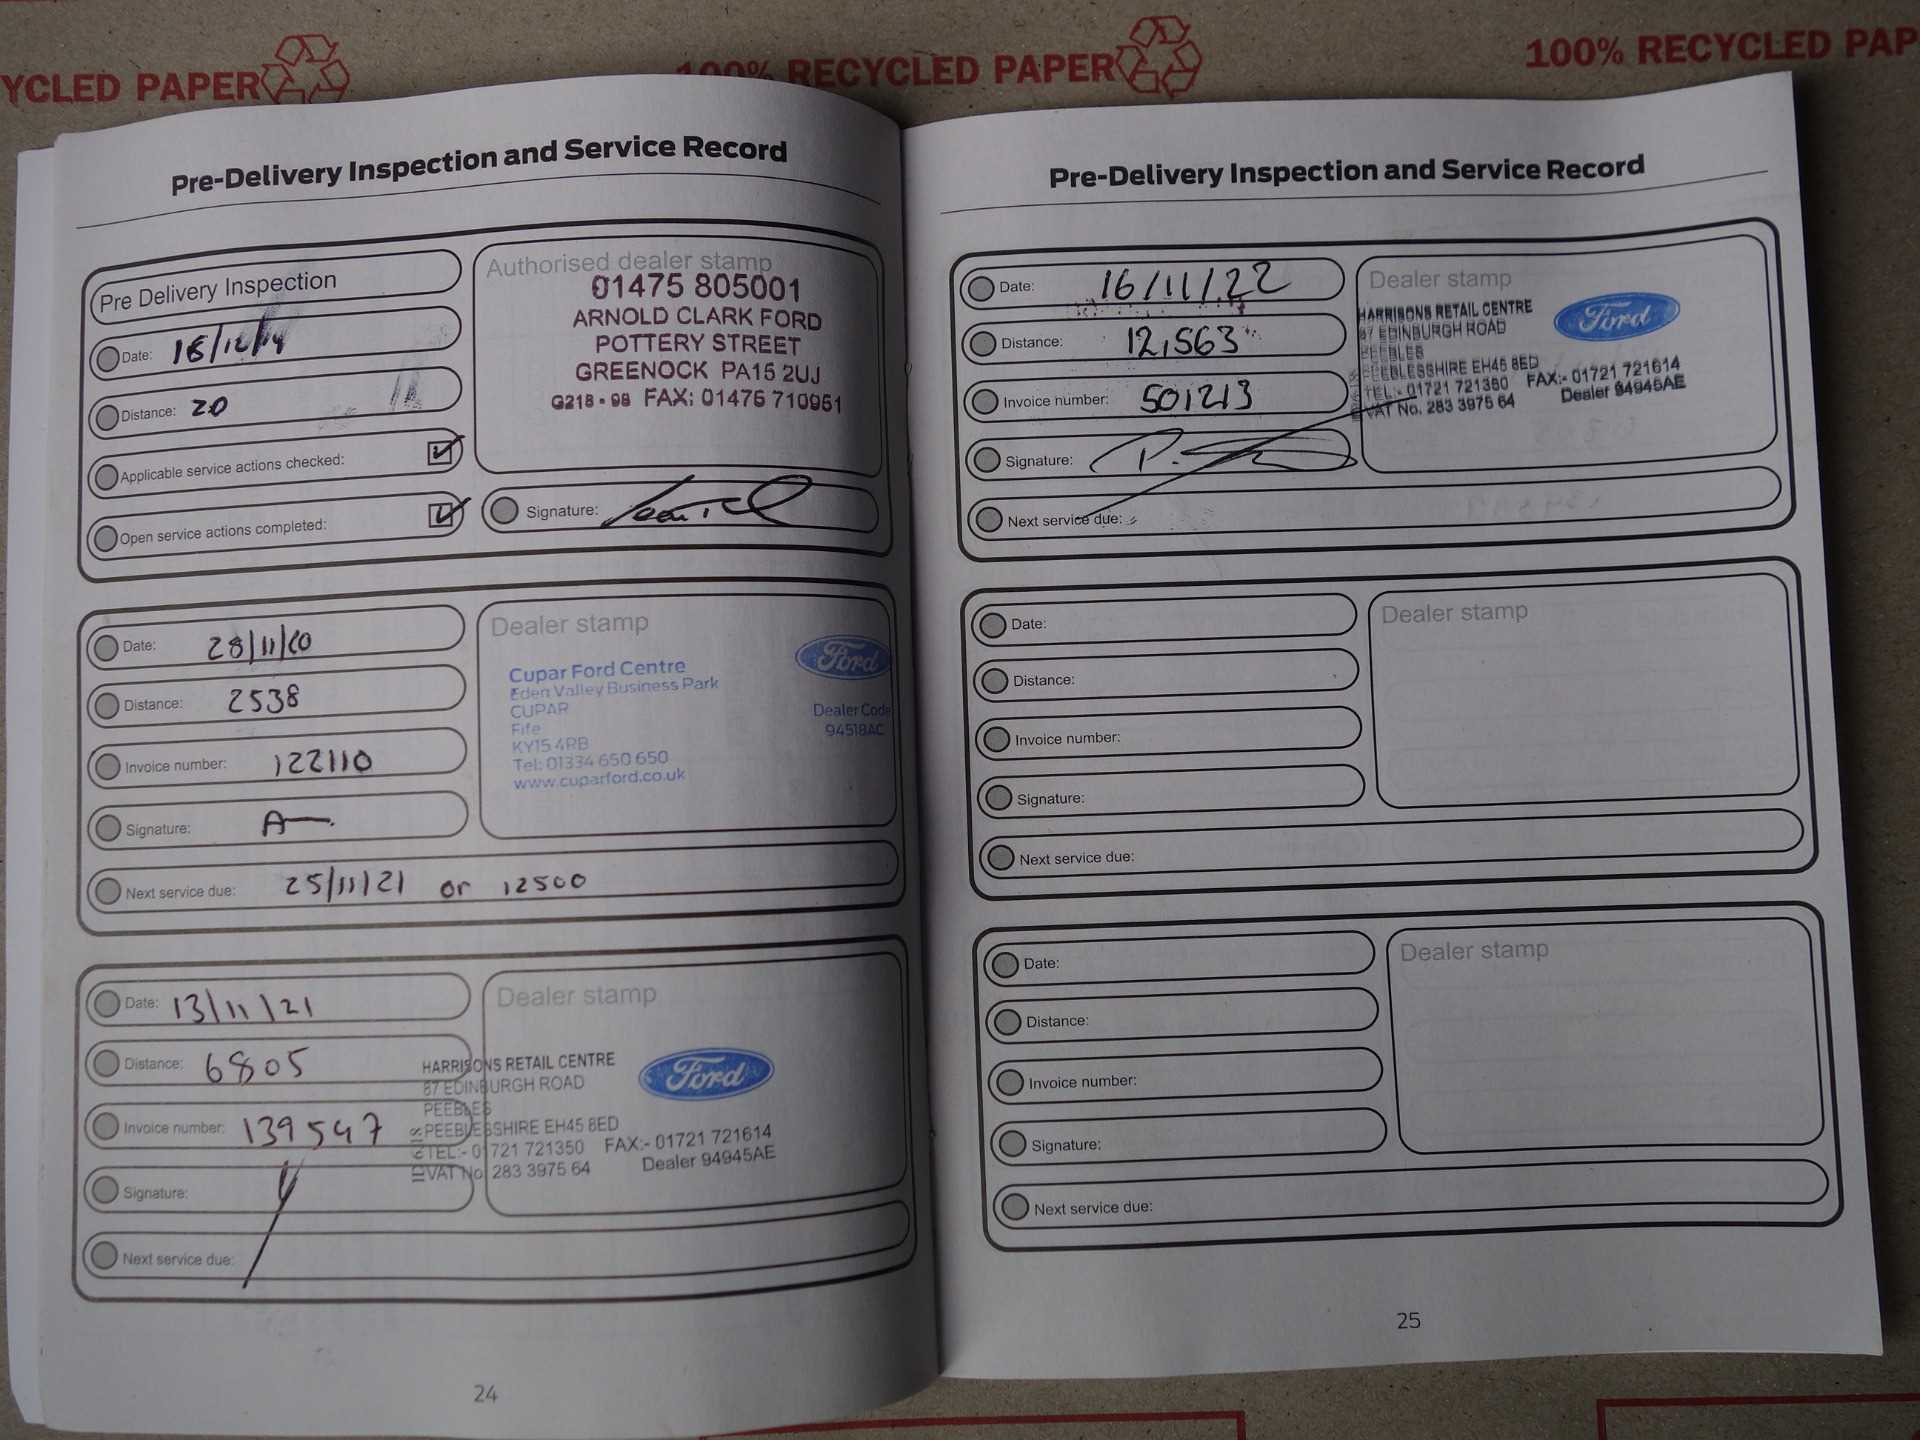 YCLED PAPER
100% RECYCLED PAPER
100% RECYCLED PAP
Pre-Delivery Inspection and Service Record
Pre Delivery Inspection
Date:
Distance: 20
Applicable service actions checked:
Open service actions completed:
Authorised dealer stamp
01475 805001
ARNOLD CLARK FORD
POTTERY STREET
GREENOCK PA15 2UJ
G218 - 98 FAX: 01475 710951
Signature:
Date: 28/11/20
Distance: 2538
Invoice number: 122110
Signature:
Next service due: 25/11/21 or 12500
Dealer stamp
Cupar Ford Centre
Eden Valley Business Park
CUPAR
Fife
KY15 4RB
Tel: 01334 650 650
www.cuparford.co.uk
Ford
Dealer Code
94518AC
Date: 13/11/21
Distance: 6805
Invoice number: 139547
Signature:
Next service due:
Dealer stamp
HARRISONS RETAIL CENTRE
87 EDINBURGH ROAD
PEEBLES
PEEBLESSHIRE EH45 8ED
TEL:- 01721 721350 FAX:- 01721 721614
VAT No. 283 3975 64 Dealer 94945AE
Ford
24
Pre-Delivery Inspection and Service Record
Date: 16/11/22
Distance: 12,563
Invoice number: 501213
Signature:
Next service due:
Dealer stamp
HARRISONS RETAIL CENTRE
87 EDINBURGH ROAD
PEEBLES
PEEBLESSHIRE EH45 8ED
TEL:- 01721 721350 FAX:- 01721 721614
VAT No. 283 3975 64 Dealer 94945AE
Ford
Date:
Distance:
Invoice number:
Signature:
Next service due:
Dealer stamp
Date:
Distance:
Invoice number:
Signature:
Next service due:
Dealer stamp
25